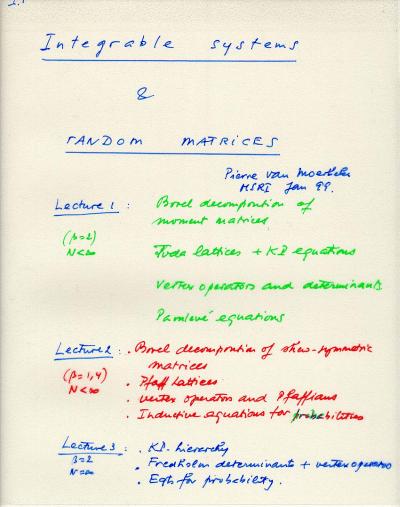 1.1
Integrable systems
&
RANDOM MATRICES
Pierre van Moerbeke
MSRI Jan 99.
Lecture 1 : Borel decomposition of
moment matrices
(β=2)
N<∞ Toda lattices + KP equations
Vertex operators and determinants
Painlevé equations
Lecture 2 : . Borel decomposition of skew-symmetric
matrices
(β=1,4) . Pfaff Lattices
N<∞ . vertex operators and Pfaffians
. Inductive equations for probabilities
Lecture 3 : . KP-hierarchy
β=2 . Fredholm determinants + vertex operators
N=∞ . Eqts for probability.